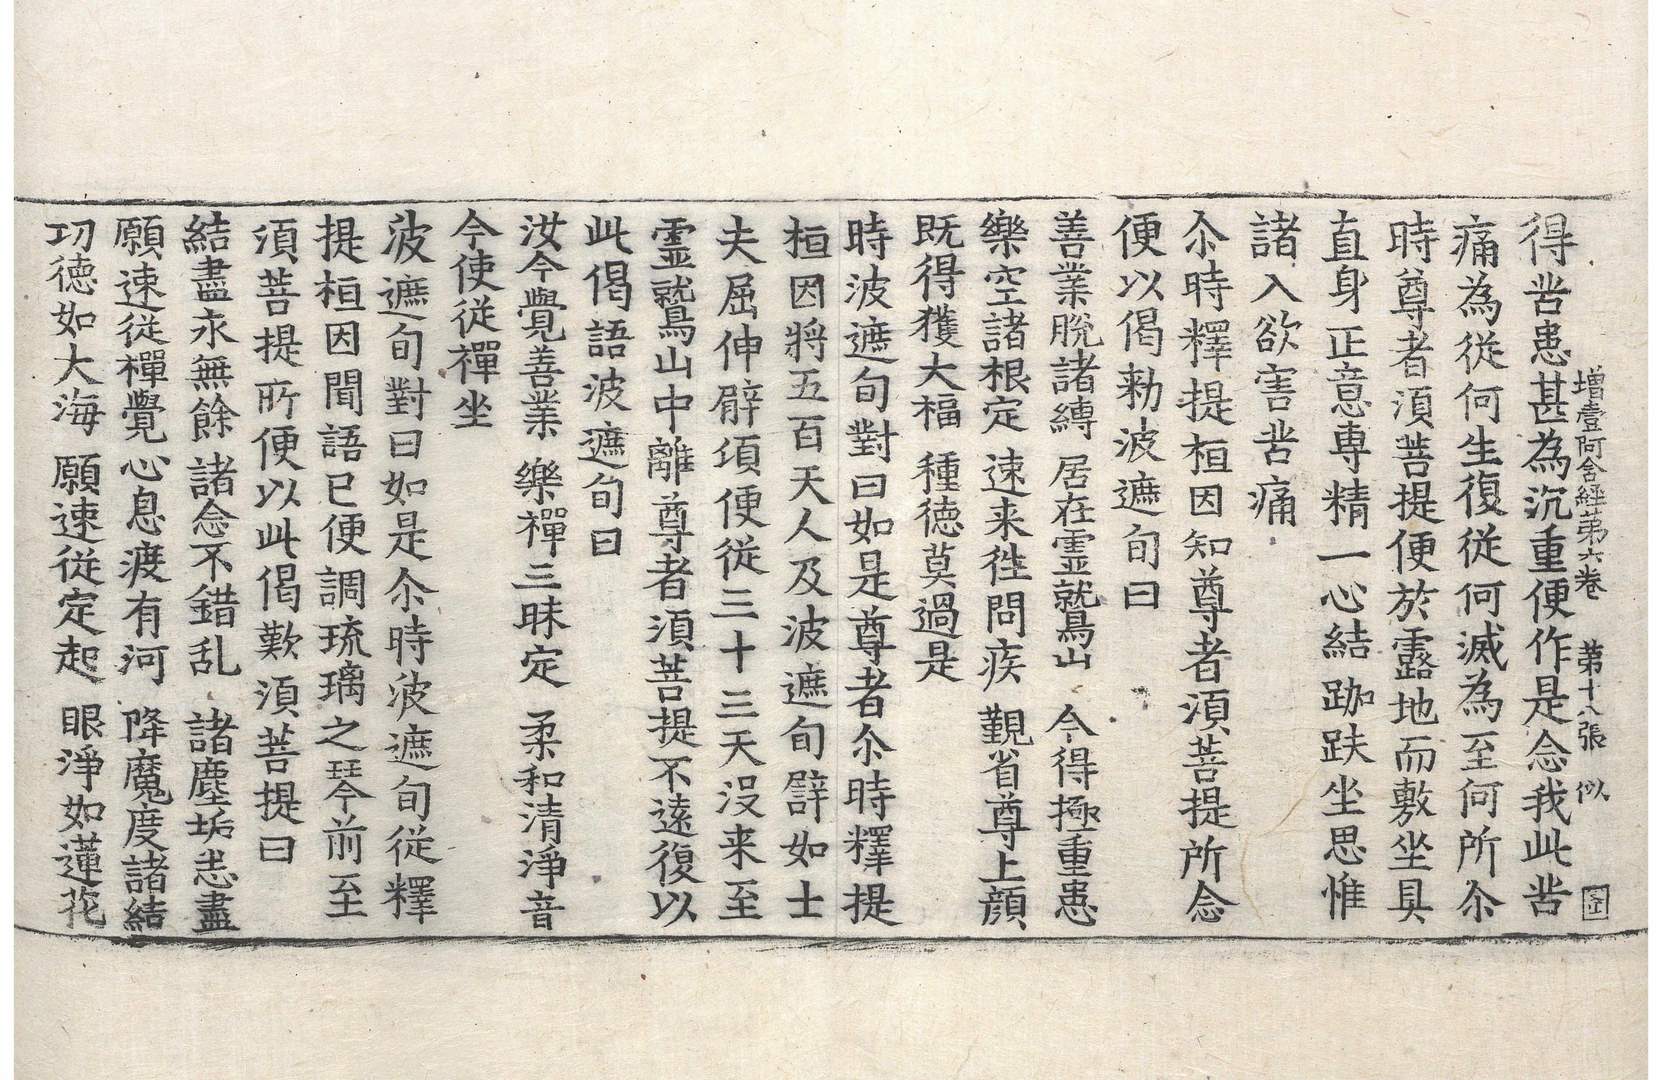 增壹阿含經第六卷 第十八張 似
得苦患甚為沉重便作是念我此苦
痛為從何生復從何滅為至何所尒
時尊者須菩提便於露地而敷坐具
直身正意專精一心結跏趺坐思惟
諸入欲害苦痛
尒時釋提桓因知尊者須菩提所念
便以偈勑波遮旬曰
善業脫諸縛 居在靈鷲山 今得極重患
樂空諸根定 速来徃問疾 覲省尊上顔
既得獲大福 種德莫過是
時波遮旬對曰如是尊者尒時釋提
桓因將五百天人及波遮旬譬如士
夫屈伸臂頃便從三十三天沒来至
靈鷲山中離尊者須菩提不遠復以
此偈語波遮旬曰
汝今覺善業 樂禪三昧定 柔和清淨音
今使從禪坐
波遮旬對曰如是尒時波遮旬從釋
提桓因聞語已便調琉璃之琴前至
須菩提所便以此偈歎須菩提曰
結盡永無餘 諸念不錯乱 諸塵垢悉盡
願速從禪覺 心息渡有河 降魔度諸結
功德如大海 願速從定起 眼淨如蓮花